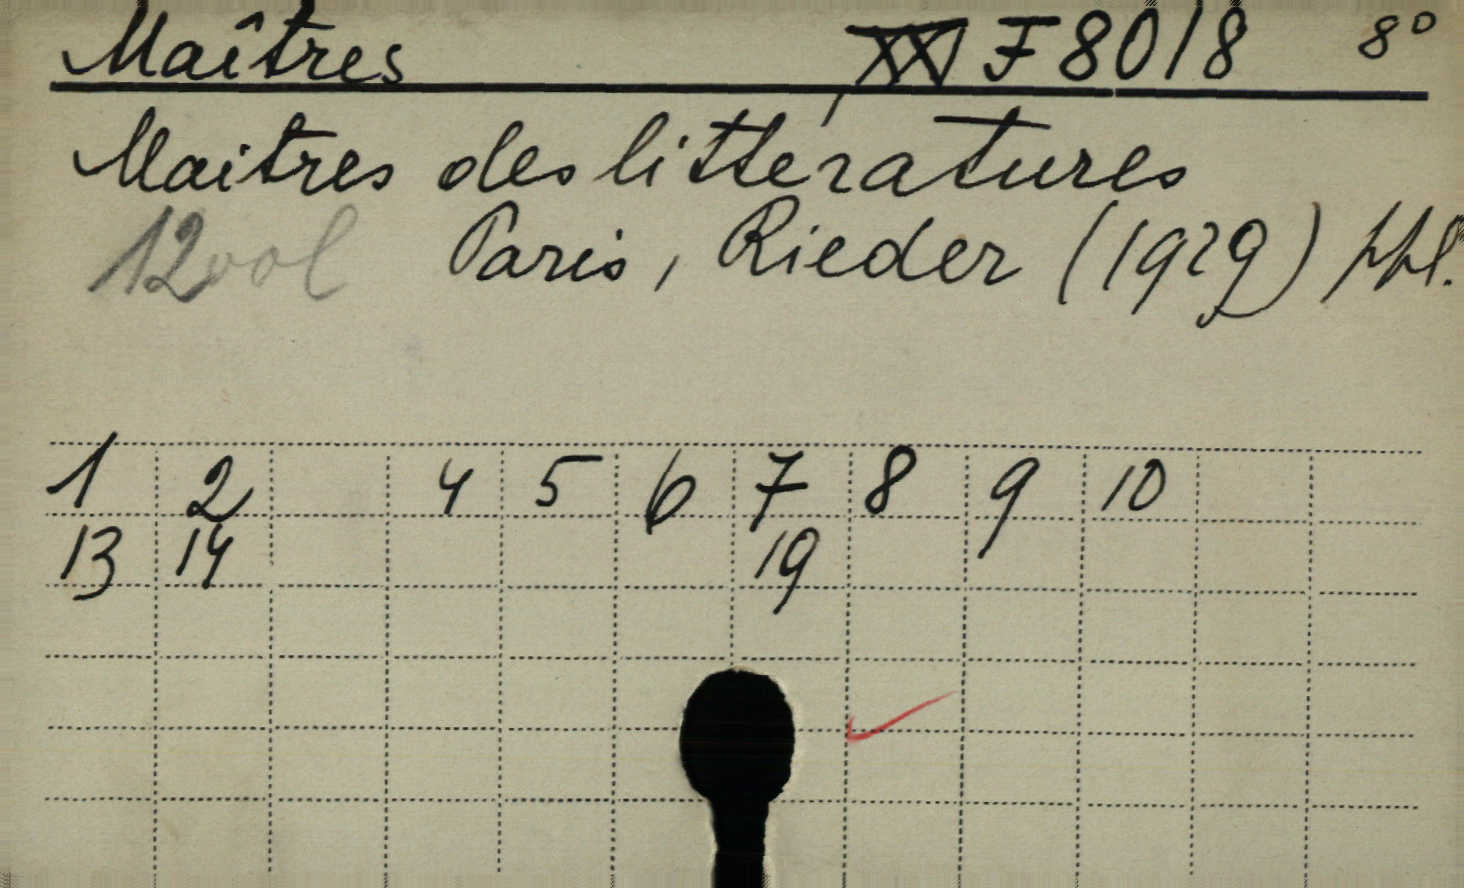 Maîtres XXI F 8018 8°
Maitres des littératures
12 vol Paris, Rieder (1929) ppl.
1 2 4 5 6 7 8 9 10
13 14 19